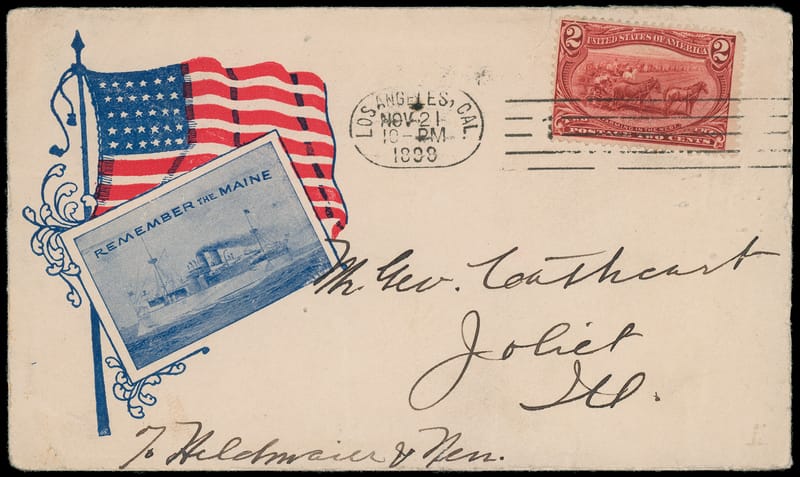 REMEMBER THE MAINE
LOS ANGELES, CAL.
NOV 21
10 - PM
1898
2 2
UNITED STATES OF AMERICA
FARMING IN THE WEST
POSTAGE TWO CENTS
Mr. Geo. Cathcart
Joliet
Ill.